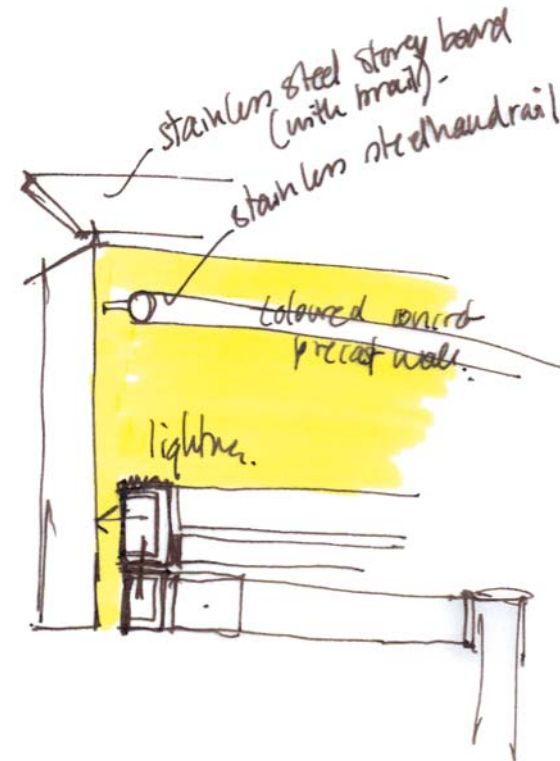 stainless steel storey board
(with brail).
stainless steel handrail
coloured concret
precast wall.
lighting.